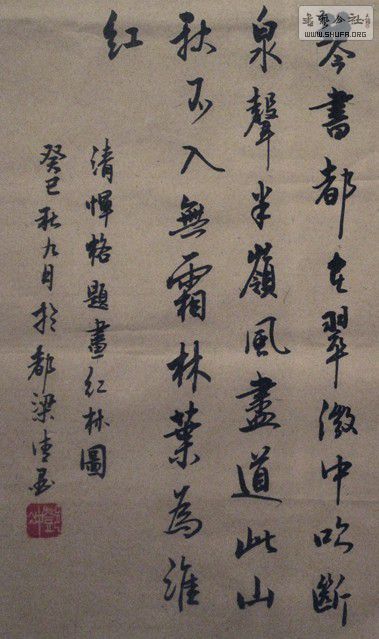 琴書都在翠微中吹斷
泉聲半嶺風盡道此山
秋不入無霜林葉為誰
紅
清惲格題畫紅林圖
癸巳秋九月於都梁
WWW.SHUFA.ORG